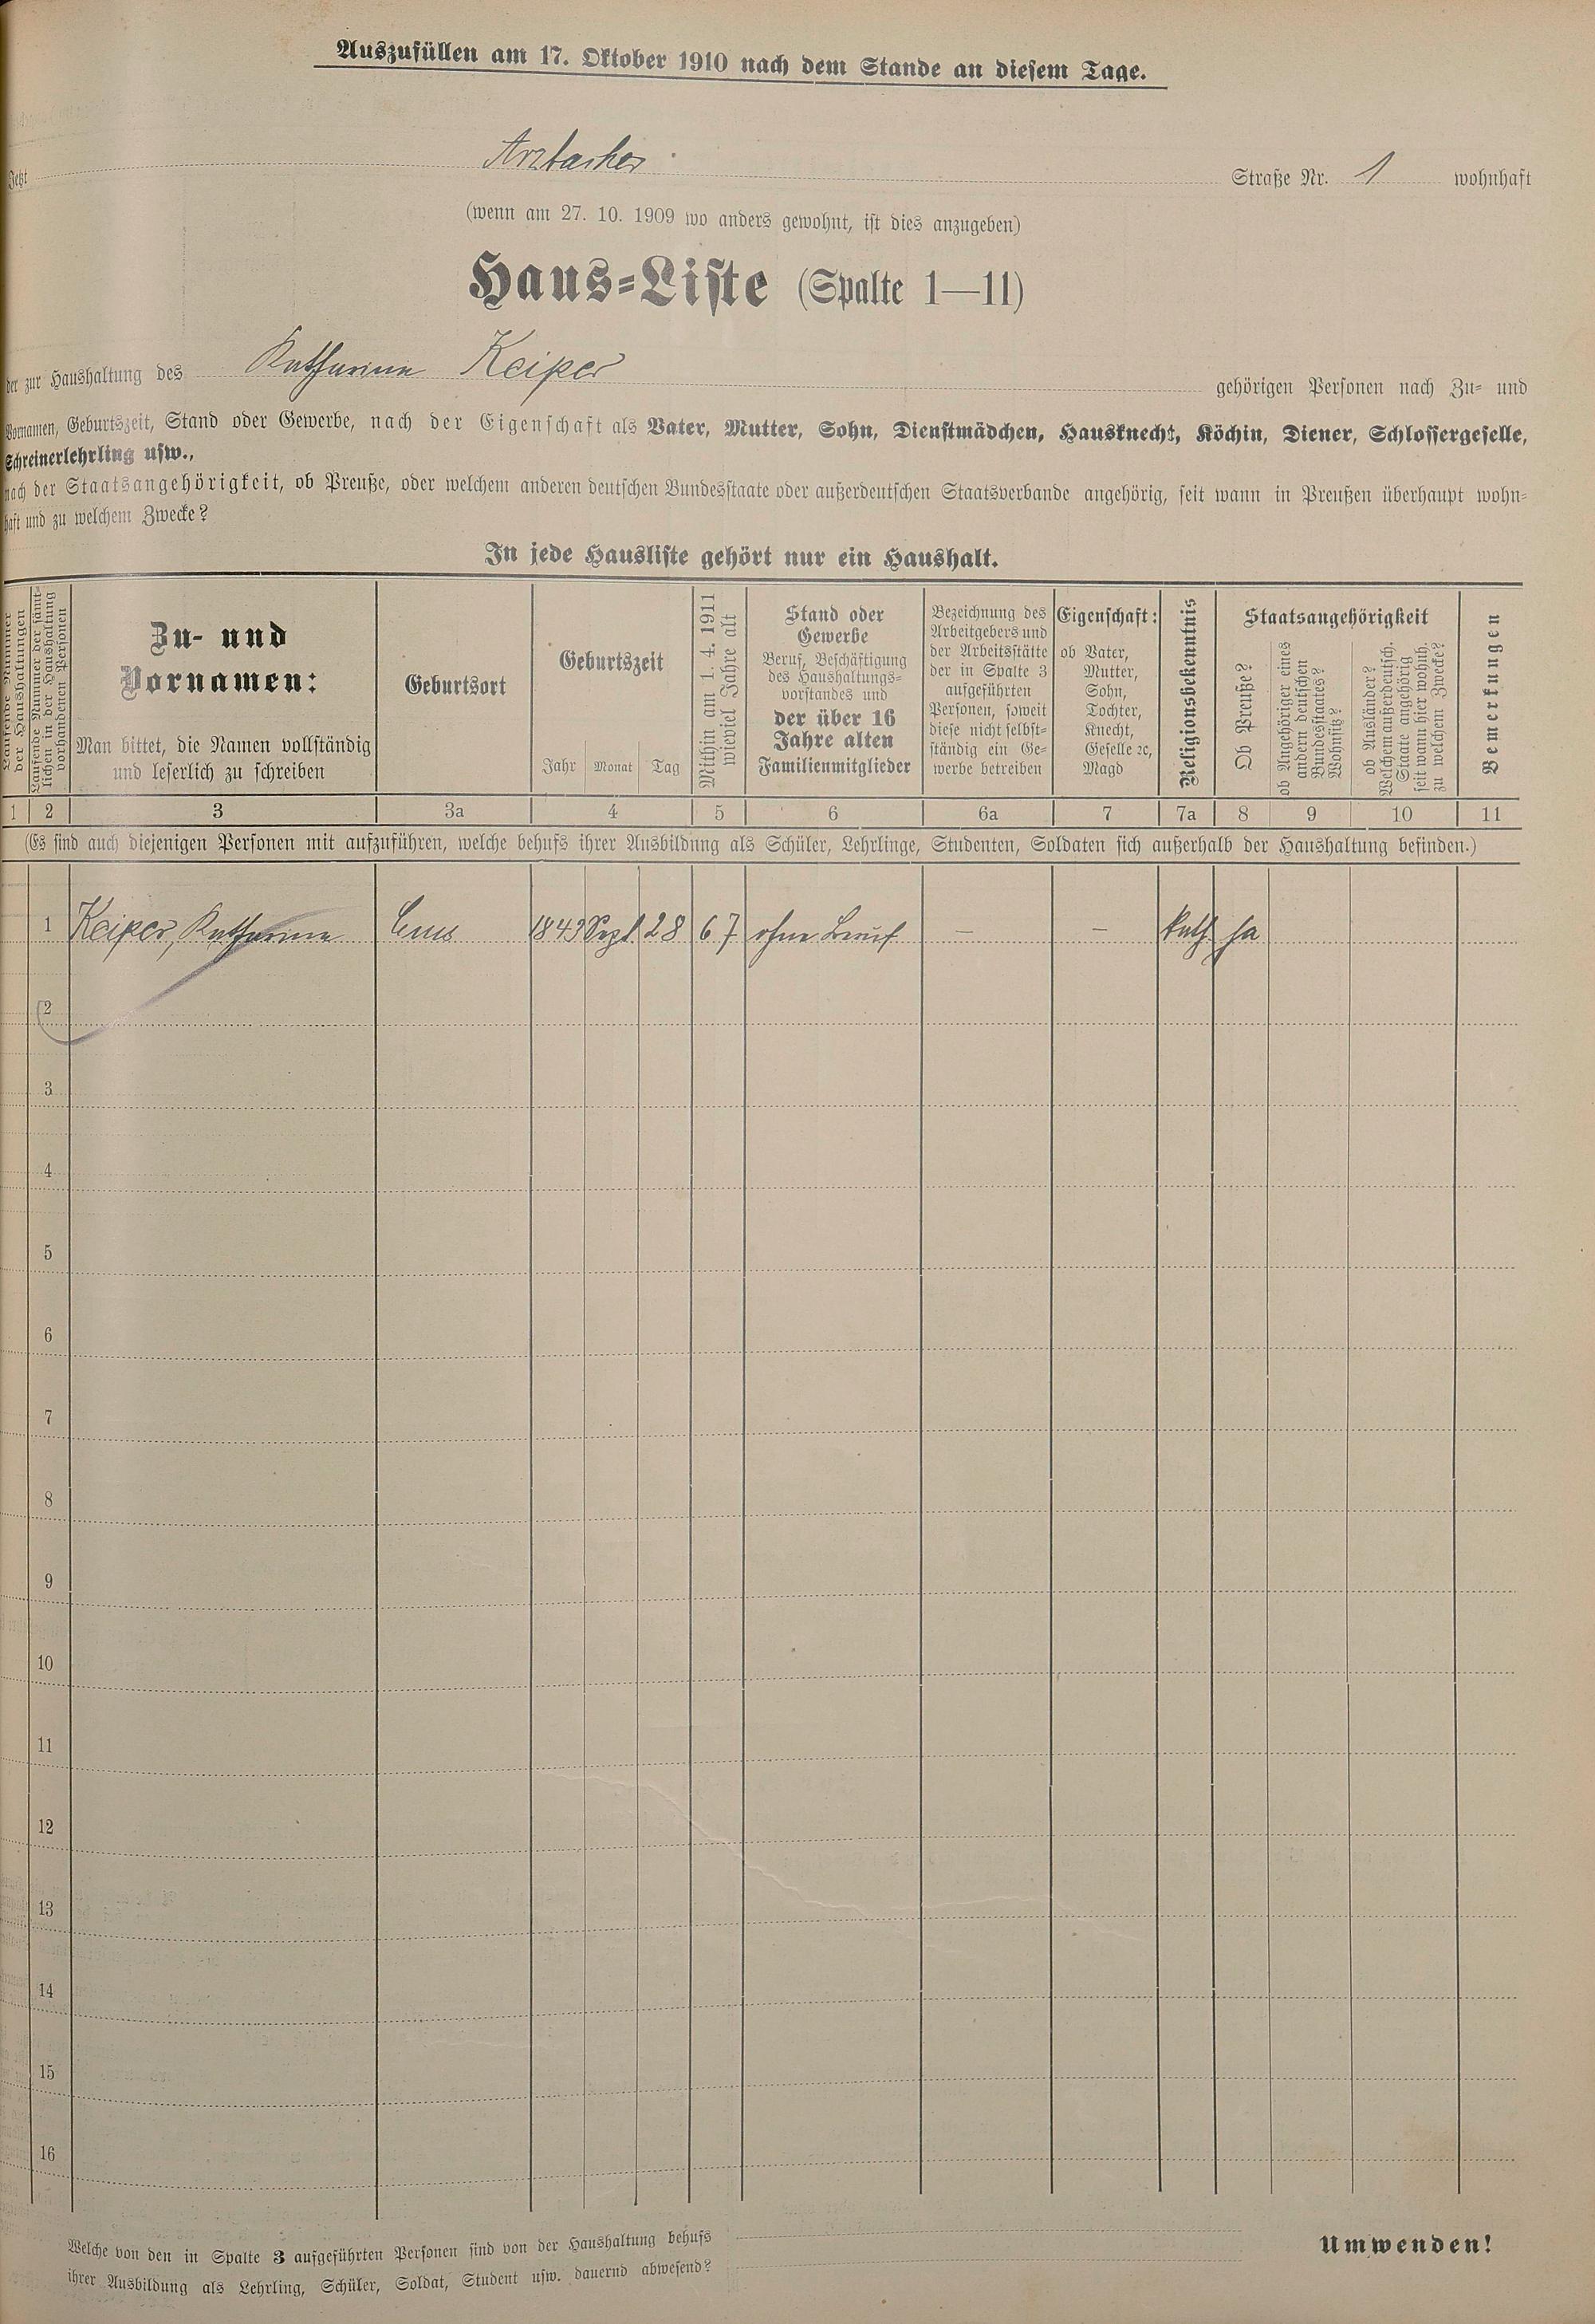 Auszufüllen am 17. Oktober 1910 nach dem Stande an diesem Tage.
Jetzt Arzbacher Straße Nr. 1 wohnhaft
(wenn am 27. 10. 1909 wo anders gewohnt, ist dies anzugeben)
Haus-Liste (Spalte 1—11)
der zur Haushaltung des Katharina Keiper gehörigen Personen nach Zu- und
Vornamen, Geburtszeit, Stand oder Gewerbe, nach der Eigenschaft als Vater, Mutter, Sohn, Dienstmädchen, Hausknecht, Köchin, Diener, Schlossergeselle,
Schreinerlehrling usw.,
nach der Staatsangehörigkeit, ob Preuße, oder welchem anderen deutschen Bundesstaate oder außerdeutschen Staatsverbande angehörig, seit wann in Preußen überhaupt wohn-
haft und zu welchem Zwecke?
In jede Hausliste gehört nur ein Haushalt.
Laufende Nummer
der Haushaltungen
Laufende Nummer der sämt-
lichen in der Haushaltung
vorhandenen Personen
Zu- und
Vornamen:
Man bittet, die Namen vollständig
und leserlich zu schreiben
Geburtsort
Geburtszeit
Jahr Monat Tag
Mithin am 1. 4. 1911
wieviel Jahre alt
Stand oder
Gewerbe
Beruf, Beschäftigung
des Haushaltungs-
vorstandes und
der über 16
Jahre alten
Familienmitglieder
Bezeichnung des
Arbeitgebers und
der Arbeitsstätte
der in Spalte 3
aufgeführten
Personen, soweit
diese nicht selbst-
ständig ein Ge-
werbe betreiben
Eigenschaft:
ob Vater,
Mutter,
Sohn,
Tochter,
Knecht,
Geselle ꝛc,
Magd
Religionsbekenntnis
Staatsangehörigkeit
Ob Preuße?
ob Angehöriger eines
andern deutschen
Bundesstaates?
Wohnsitz?
ob Ausländer?
Welchem außerdeutsch.
Staate angehörig
seit wann hier wohnh.
zu welchem Zwecke?
Bemerkungen
1 2 3 3a 4 5 6 6a 7 7a 8 9 10 11
(Es sind auch diejenigen Personen mit aufzuführen, welche behufs ihrer Ausbildung als Schüler, Lehrlinge, Studenten, Soldaten sich außerhalb der Haushaltung befinden.)
1 Keiper, Katharina Ems 1843 Sept. 28 67 ohne Beruf — — kath. ja
2
3
4
5
6
7
8
9
10
11
12
13
14
15
16
Welche von den in Spalte 3 aufgeführten Personen sind von der Haushaltung behufs
ihrer Ausbildung als Lehrling, Schüler, Soldat, Student usw. dauernd abwesend?
Umwenden!